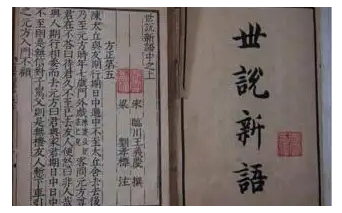 世說新語
世說新語中之上
宋 臨川王義慶 撰
梁 劉孝標 注
方正第五
陳太丘與友期行期日中過中不至太丘舍去去後
乃至元方時年七歲門外戲 客問元方尊
君在不答曰待君久不至已去友人便怒曰非人哉
與人期行相委而去元方曰君與家君期日中日中
不至則是無信對子罵父則是無禮友人慚下車引
之元方入門不顧